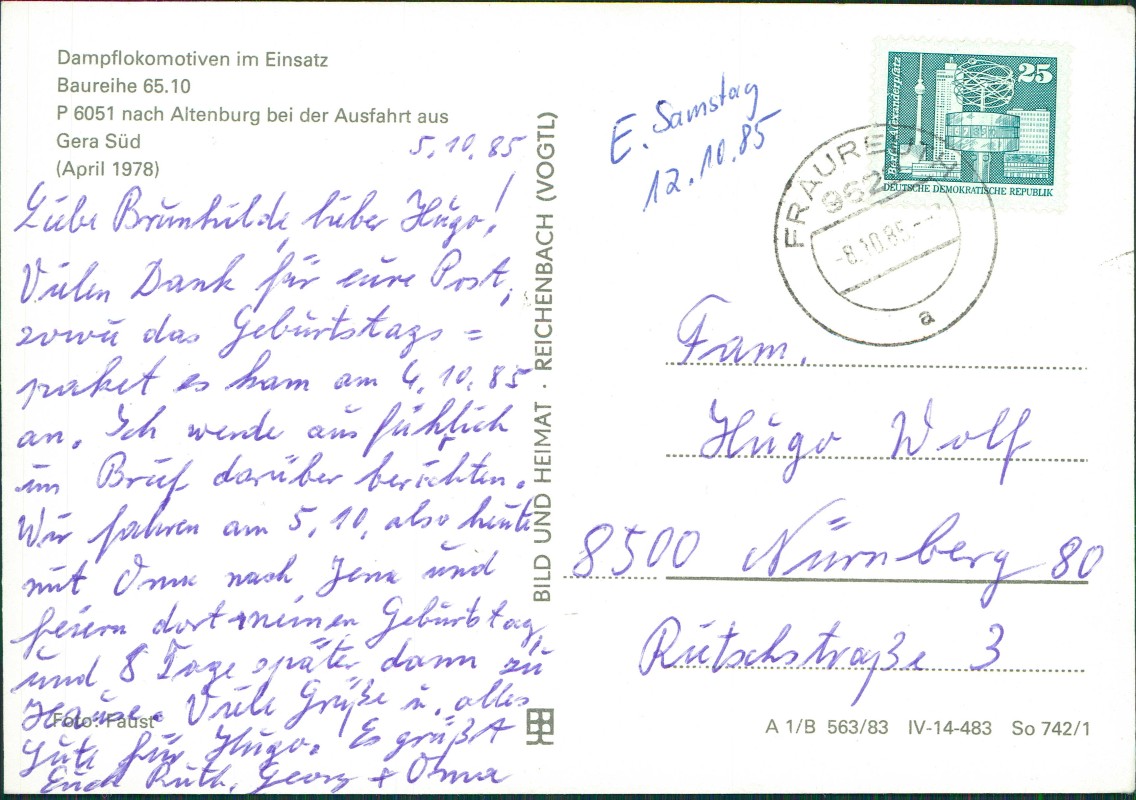 Dampflokomotiven im Einsatz
Baureihe 65.10
P 6051 nach Altenburg bei der Ausfahrt aus
Gera Süd
(April 1978)
5.10.85
Liebe Brunhilde, lieber Hugo!
Vielen Dank für eure Post,
sowie das Geburtstags=
paket es kam am 4.10.85
an. Ich werde ausführlich
im Brief darüber berichten.
Wir fahren am 5.10. also heute
mit Oma nach Jena und
feiern dort meinen Geburtstag,
und 8 Tage später dann zu
Hause. Viele Grüße u. alles
Foto: Faust
Gute für Hugo. Es grüßt
Euch Ruth, Georg + Oma
BILD UND HEIMAT · REICHENBACH (VOGTL)
E. Samstag
12.10.85
Berlin-Alexanderplatz
25
DEUTSCHE DEMOKRATISCHE REPUBLIK
FRAUREUTH
962
-8.10.85.--
a
Fam.
Hugo Wolf
8500 Nürnberg 80
Rütschstraße 3
A 1/B 563/83 IV-14-483 So 742/1